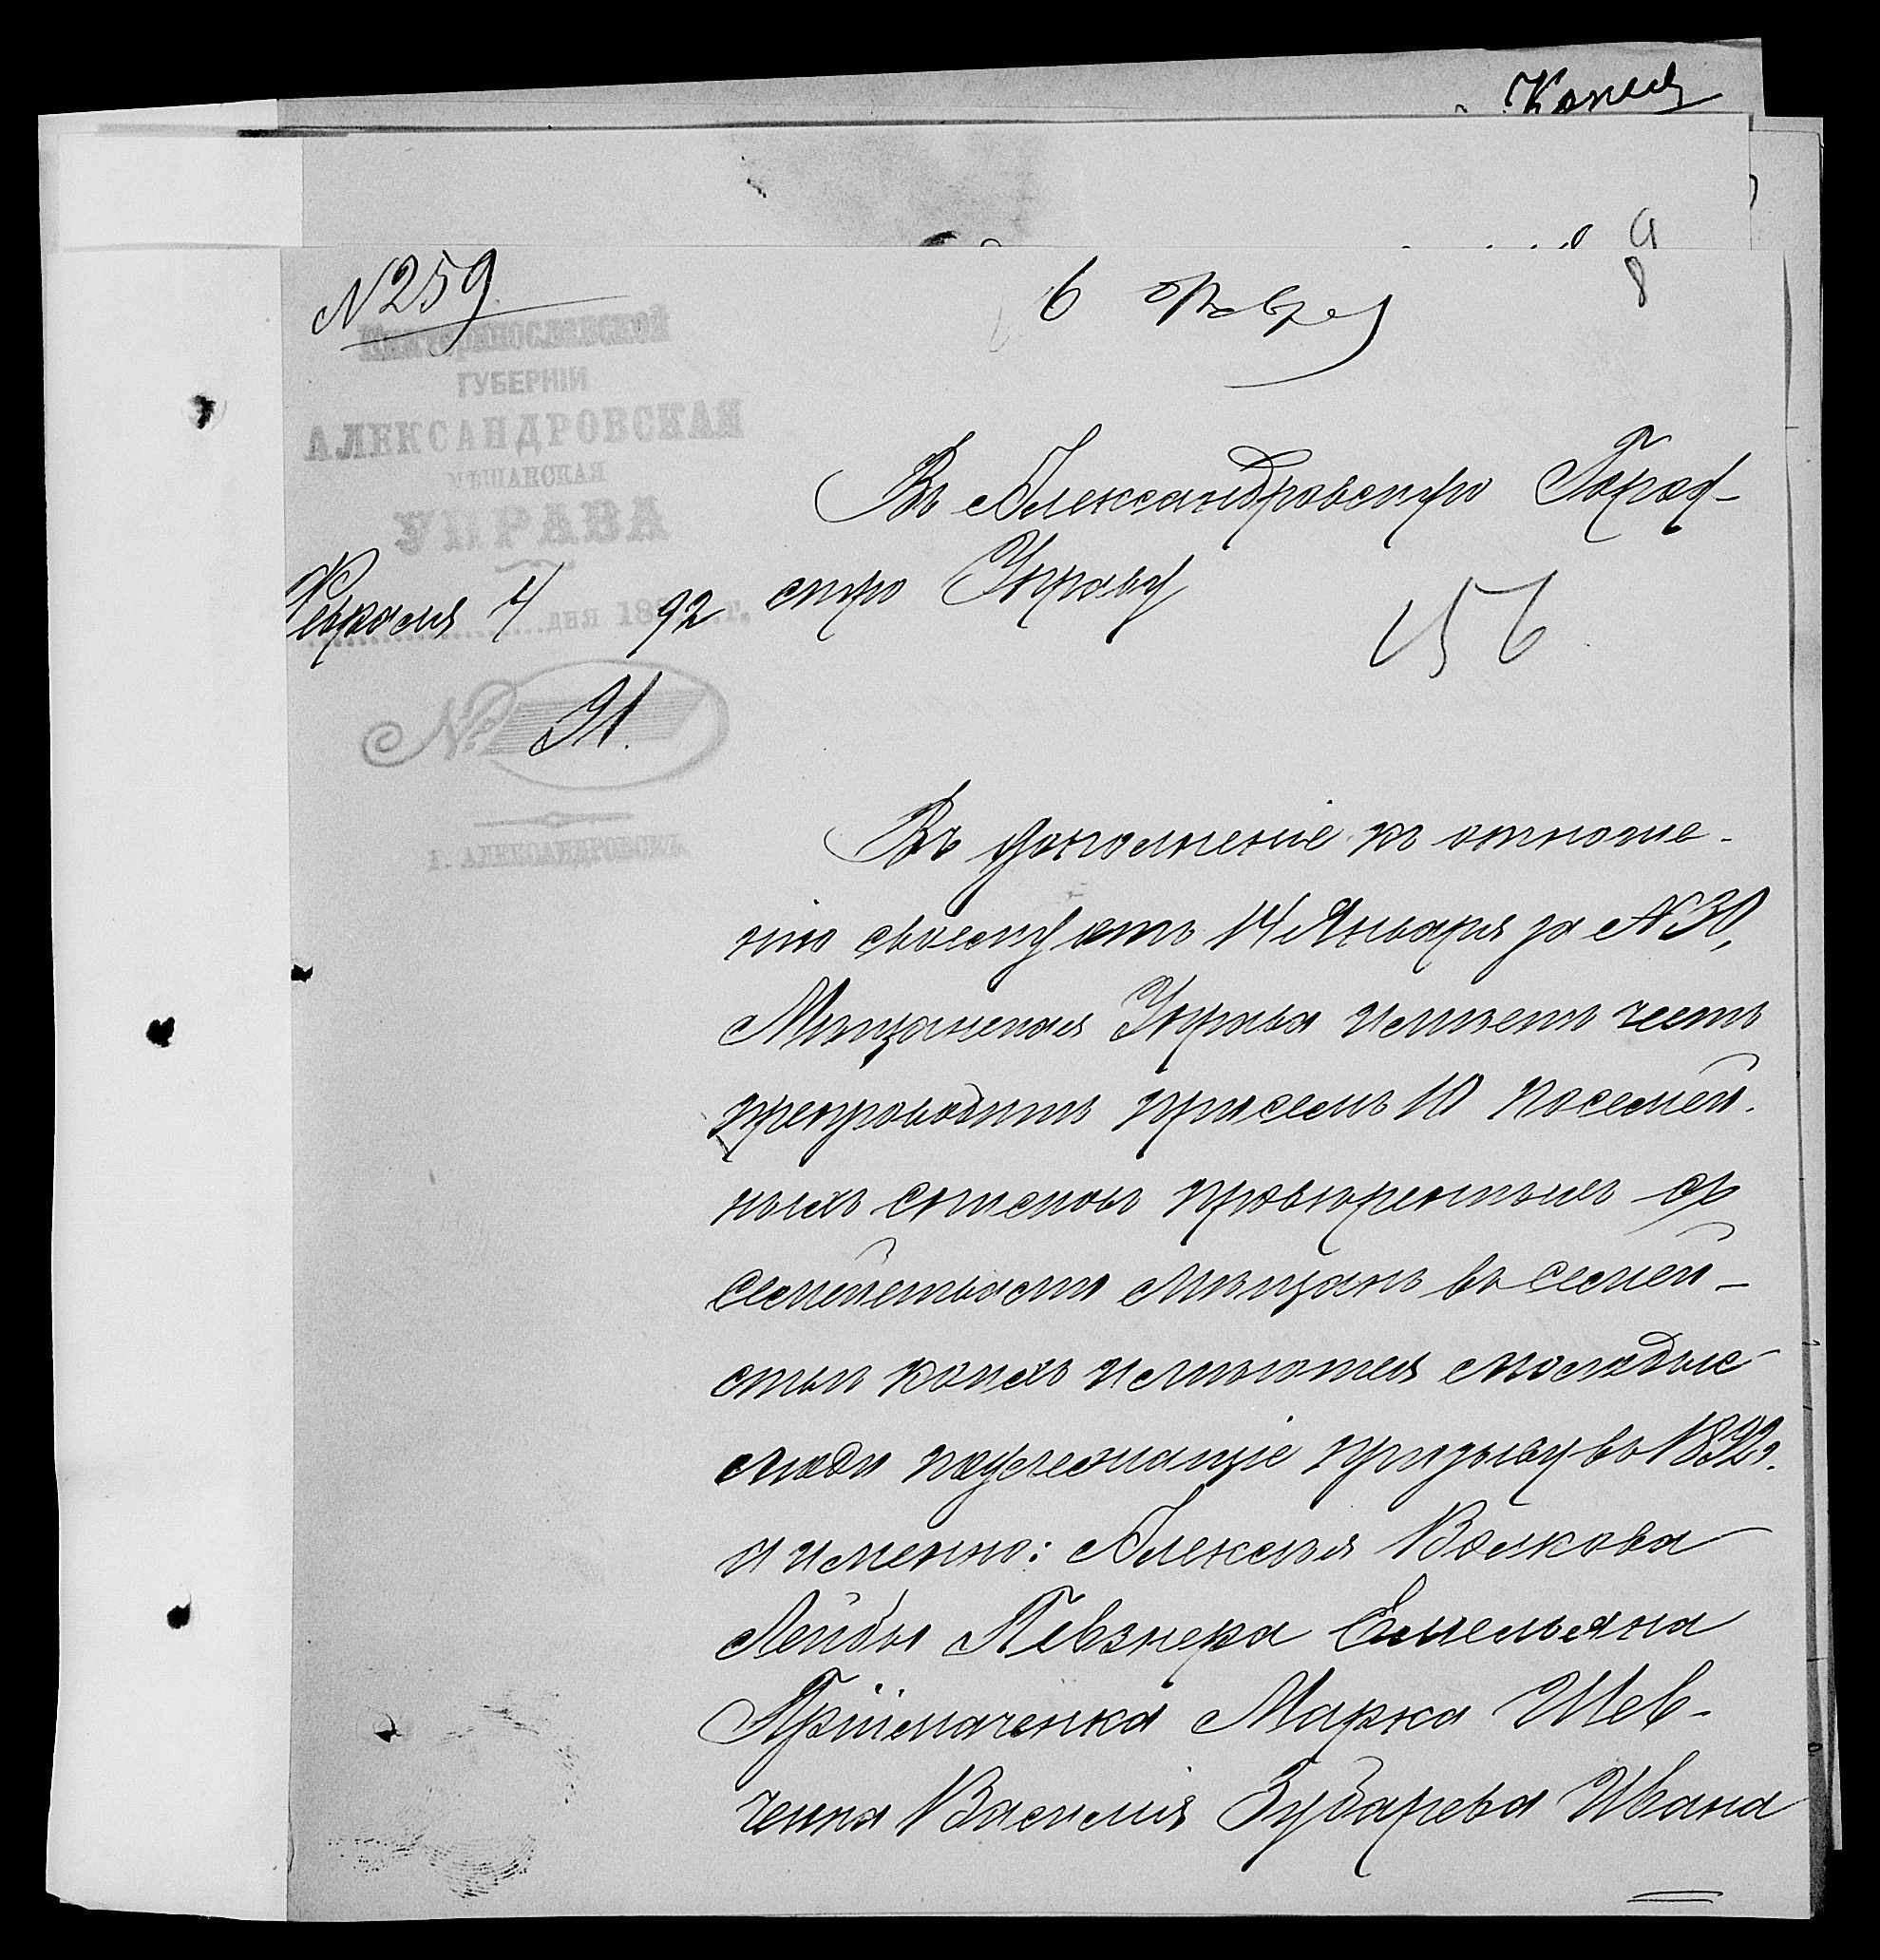 Копия
9
8
№ 259
6 Февр
Екатеринославской
ГУБЕРНІИ
АЛЕКСАНДРОВСКАЯ
МѢЩАНСКАЯ
УПРАВА
Февраля 4 дня 1892 г.
№ 91.
г. АЛЕКСАНДРОВСКЪ
Въ Александровскую Город-
скую Управу
156
Въ дополненіе къ отноше-
нію своему отъ 14 Января за № 30,
Мѣщанская Управа имѣетъ честь
препроводить при семъ 10 посемей-
ныхъ списковъ провѣренныхъ съ
семействами мѣщанъ въ семей-
ствѣ коихъ имѣются молодые
люди подлежащіе призыву въ 1892 г.
и именно: Алексѣя Волкова
Лейбы Певзнера Емельяна
Пріймаченка Марка Шев-
ченка Василія Зубарева Ивана